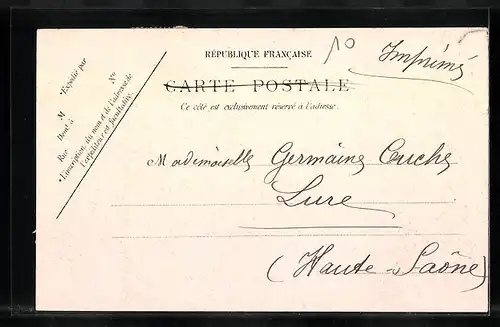 RÉPUBLIQUE FRANÇAISE
10
Imprimés
CARTE POSTALE
Ce côté est exclusivement réservé à l'adresse.
•Expédié par
M
Demt à
Rue
No
•L'inscription du nom et de l'adresse de
l'expéditeur est facultative.
Mademoiselle Germaine Cuche
Lure
(Haute-Saône)